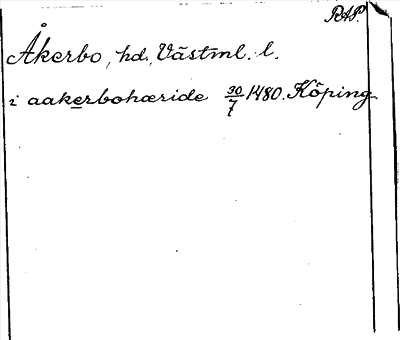 RAP.
Åkerbo, hd., Västml. l.
i aakerbohæride 30/7 1480. Köping